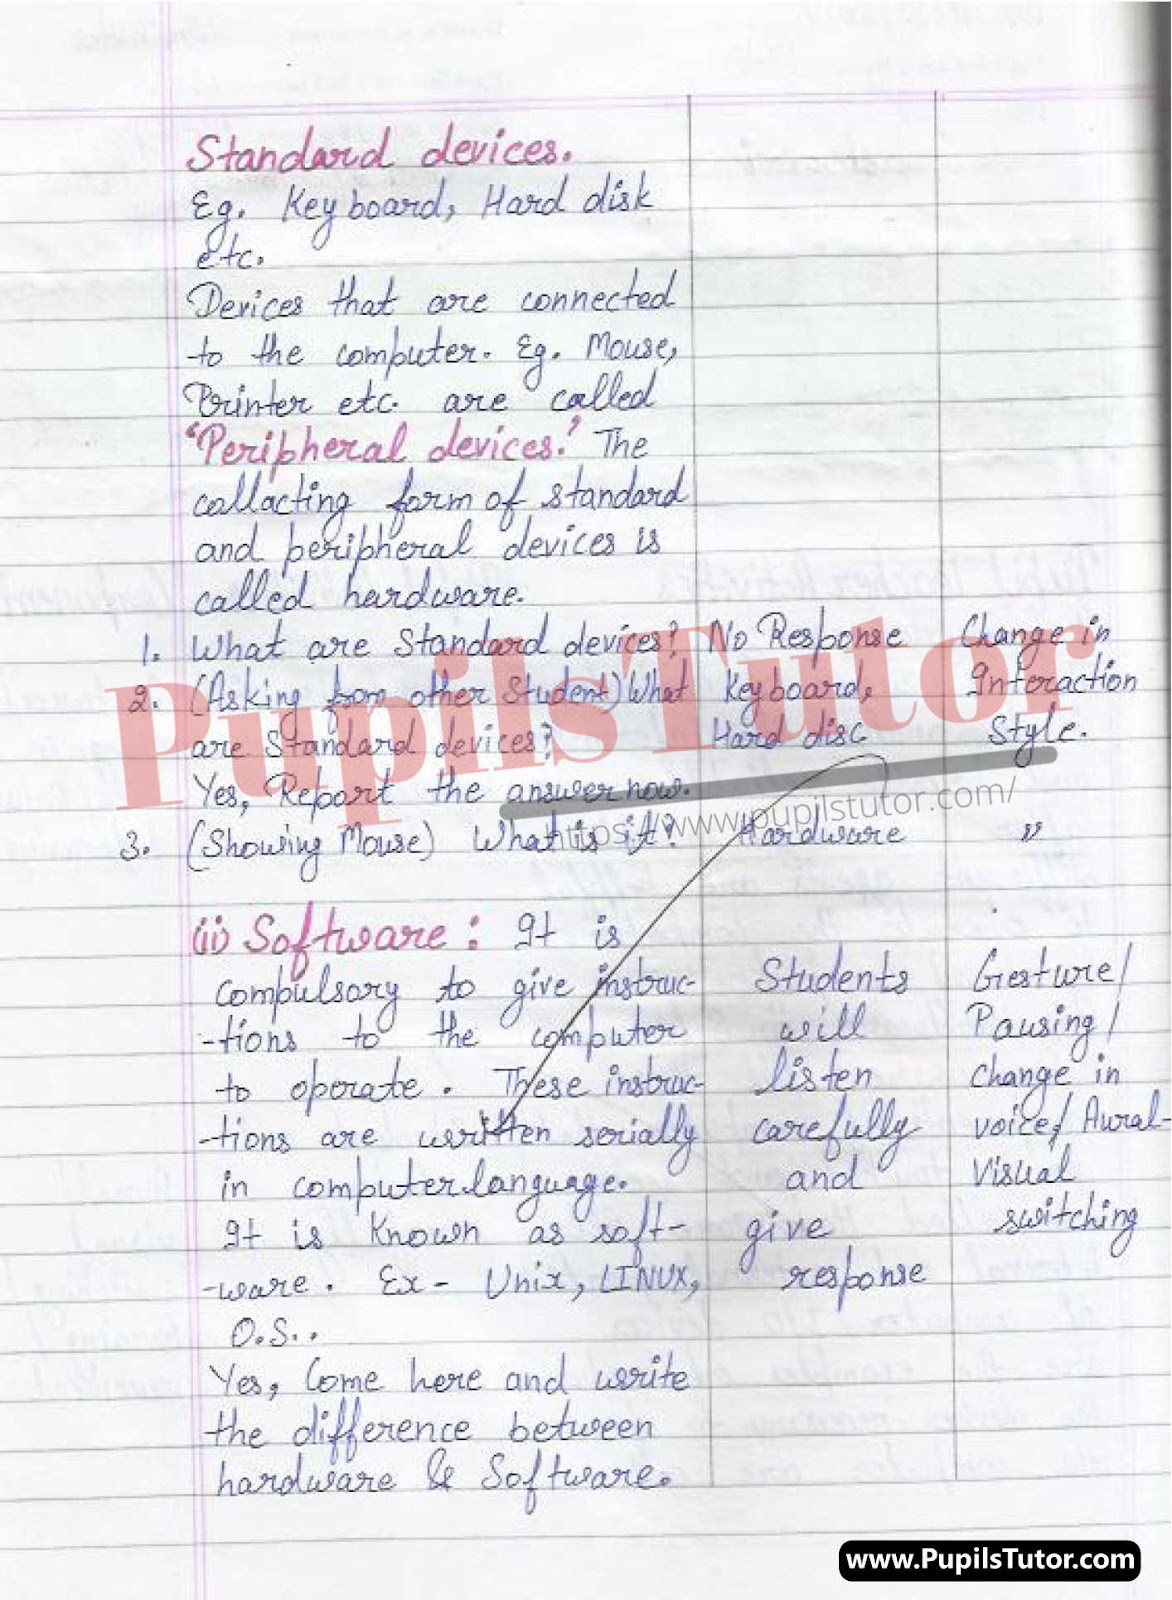 Standard devices.
Eg. Keyboard, Hard disk
etc.
Devices that are connected
to the computer. Eg. Mouse,
Printer etc. are called
'Peripheral devices.' The
collacting form of standard
and peripheral devices is
called hardware.
1. What are Standard devices? No Response Change in
2. (Asking from other Student) What Keyboard, Interaction
are Standard devices? Hard disc Style.
Yes, Report the answer now.
3. (Showing Mouse) What is it? Hardware "
(ii) Software: It is
compulsory to give instruc- Students Gesture/
-tions to the computer will Pausing/
to operate. These instruc- listen change in
-tions are written serially carefully voice/ Aural-
in computer language. and Visual
It is known as soft- give switching
-ware. Ex- Unix, LINUX, response
O.S..
Yes, Come here and write
the difference between
hardware & Software.
PupilsTutor
https://www.pupilstutor.com/
www.PupilsTutor.com